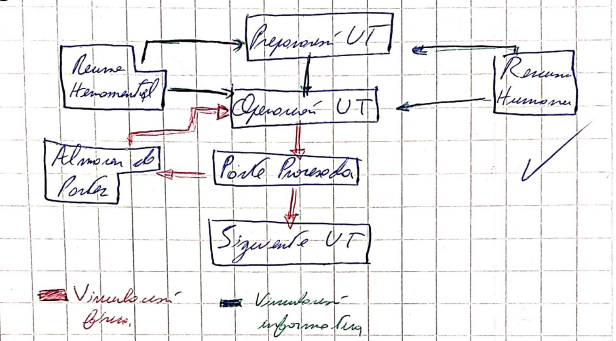 Preparación UT
Recurso
Herramental
Recurso
Humano
Operación UT
Almacen de
Partes
Parte Procesada
Siguiente UT
Vinculación
física.
Vinculación
informativa